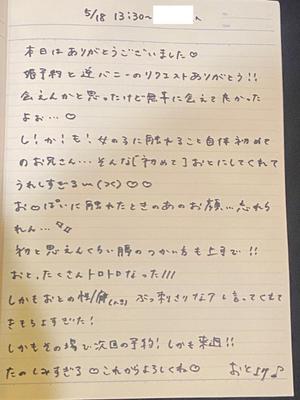 5/18 13:30〜
本日はありがとうございました♡
婚予約と逆バニーのリクエストありがとう!!
会えんかと思ったけど無事に会えて良かった
よぉ…♡
し!か!も!女の子に触れること自体初めて
のお兄さん…そんな「初めて」おとにしてくれて
うれしすぎる〜(>_<)♡♡
お♡ぱいに触れたときのあのお顔…忘れら
れん…
初と思えんくらい腰のつかい方も上手で!!
おと、たくさんトロトロなった///
しかもおとの性癖 ぶっ刺さりなア 言ってくれて
きもちよすぎた!
しかもその場で次回の予約!しかも来週!!
たのしみすぎる♡これからよろしくね♡
おとより♪